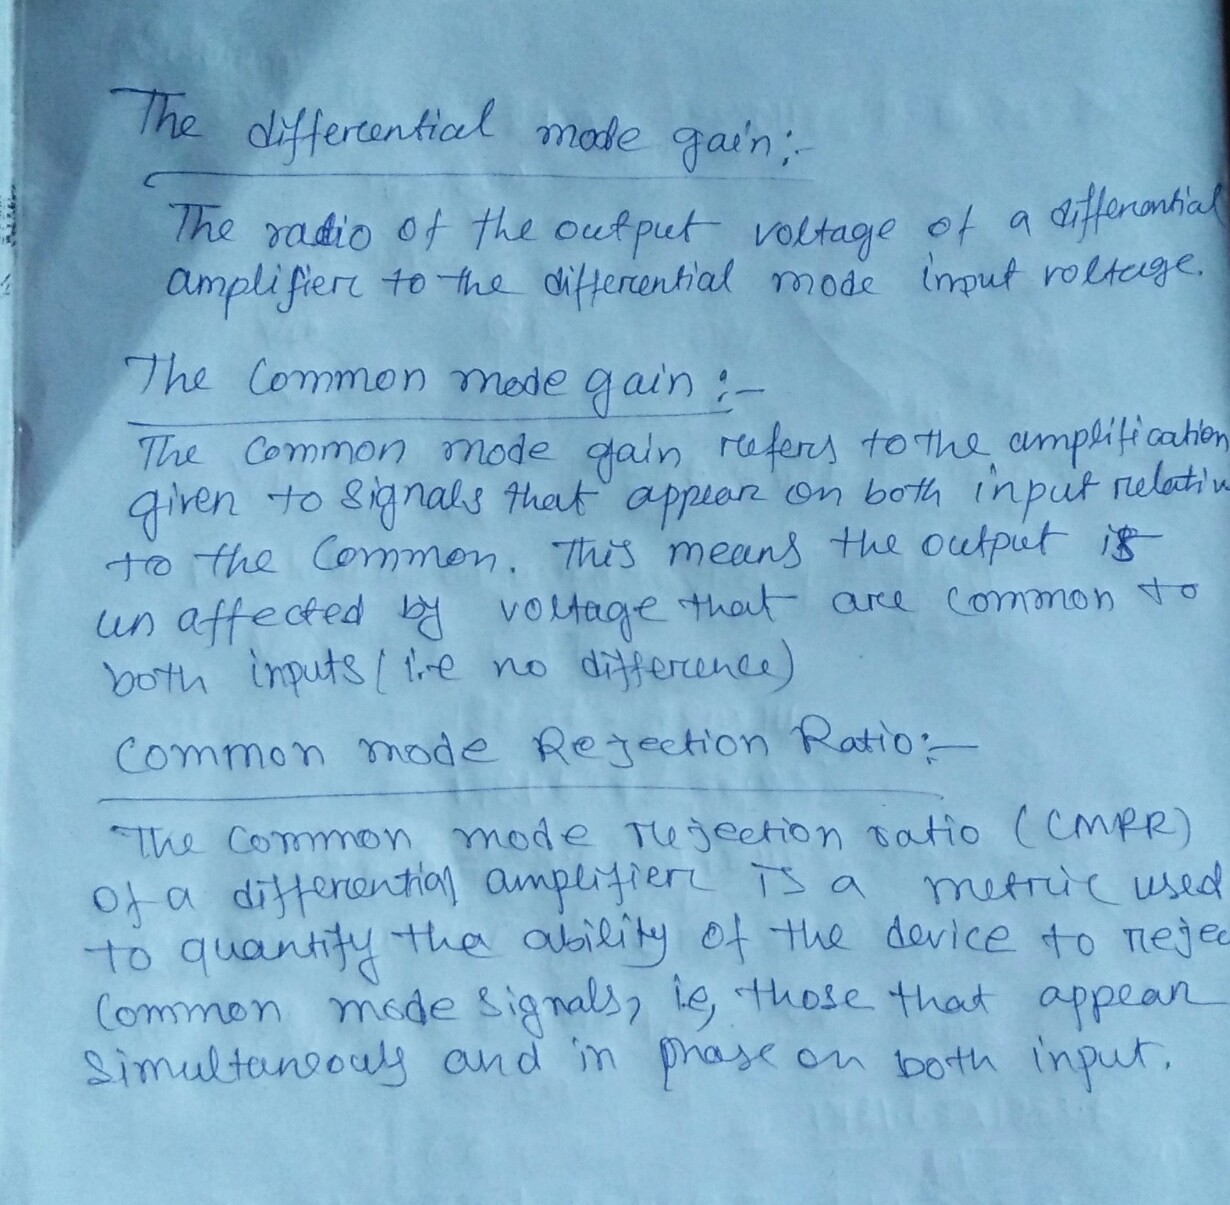 The differential mode gain:-
The radio of the output voltage of a differential
amplifier to the differential mode input voltage.
The Common mode gain :-
The Common mode gain refers to the amplification
given to signals that appear on both input relativ
to the Common. This means the output is
un affected by voltage that are common to
both inputs (i.e no difference)
Common mode Rejection Ratio:-
The Common mode rejection ratio (CMRR)
of a differential amplifier is a metric used
to quantify the ability of the device to rejec
Common mode signals, ie, those that appear
Simultaneously and in phase on both input.